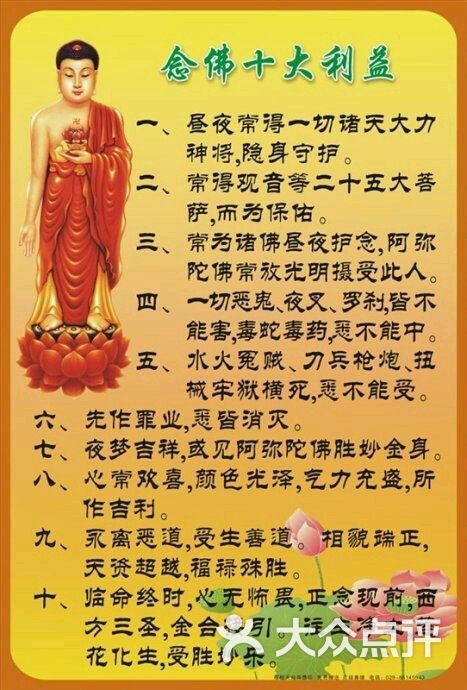 念佛十大利益
一、昼夜常得一切诸天大力
神将,隐身守护。
二、常得观音等二十五大菩
萨,而为保佑。
三、常为诸佛昼夜护念,阿弥
陀佛常放光明摄受此人。
四、一切恶鬼、夜叉、罗刹,皆不
能害,毒蛇毒药,悉不能中。
五、水火冤贼、刀兵枪炮、扭
械牢狱横死,悉不能受。
六、先作罪业,悉皆消灭。
七、夜梦吉祥,或见阿弥陀佛胜妙金身。
八、心常欢喜,颜色光泽,气力充盛,所
作吉利。
九、永离恶道,受生善道。相貌端正,
天资超越,福禄殊胜。
十、临命终时,心无怖畏,正念现前,西
方三圣,金台 引。往 净土
花化生,受胜妙乐。
大众点评